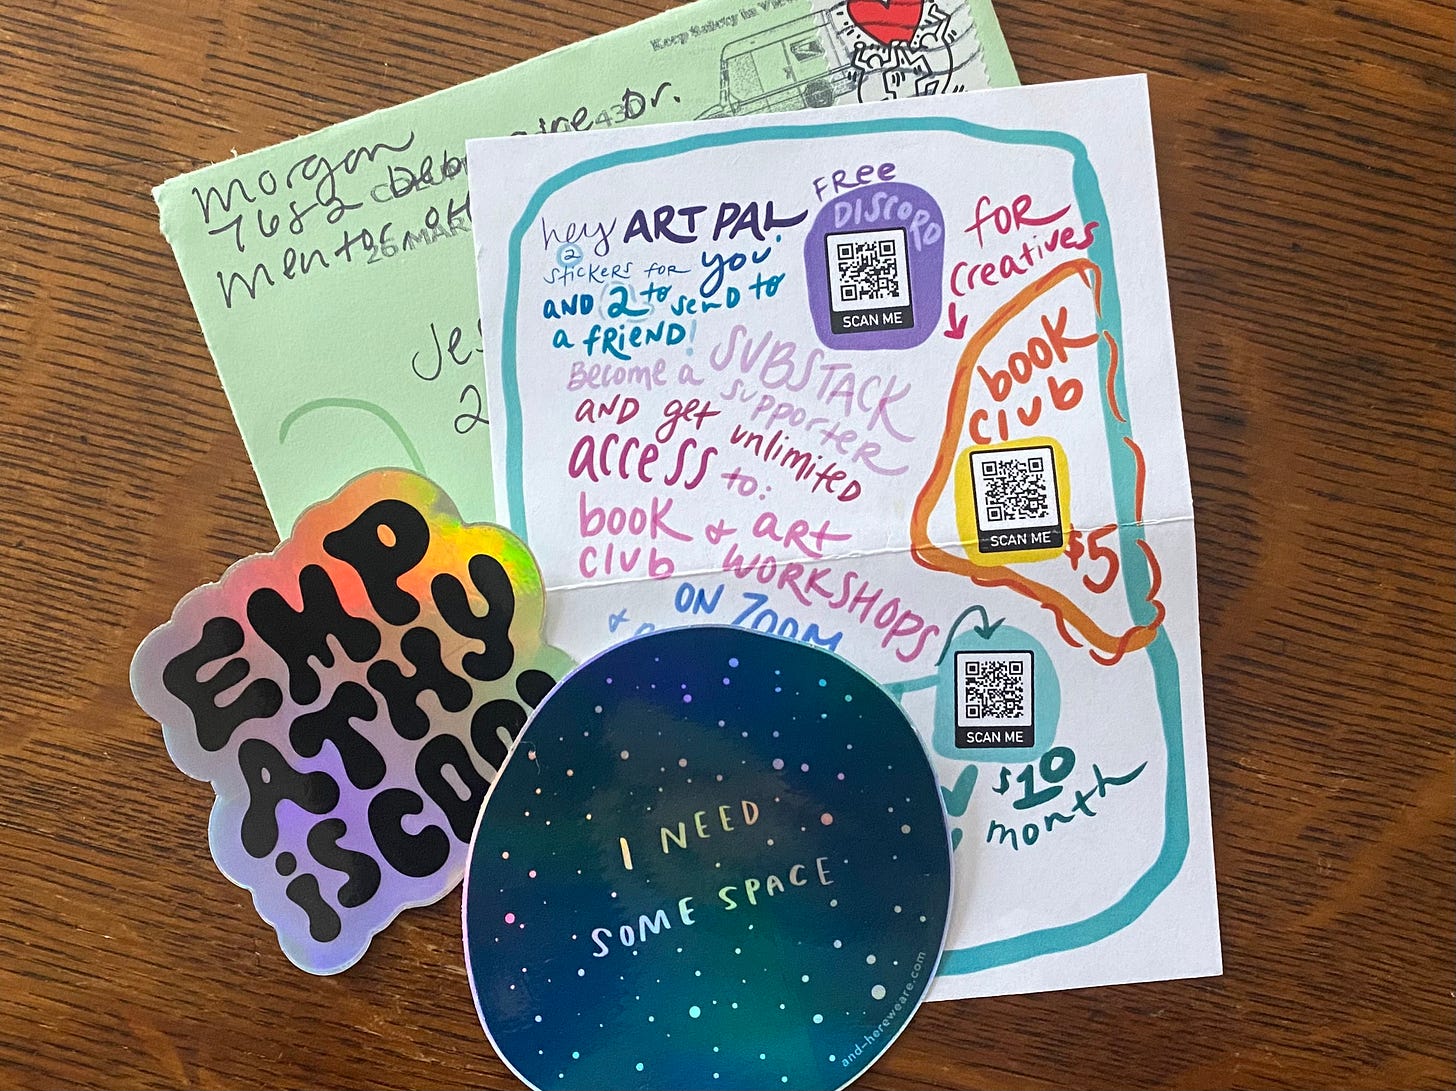 Keep Safety in
Morgan
7682 Deb
Dr.
mentor oh
26 MAR
Jes
2
hey ART PAL
2
stickers for you
AND 2 to send to
a friend!
Become a SUBSTACK
supporter
AND get unlimited
access to:
book & art
club WORKSHOPS
ON ZOOM
&
FREE
DISCORD
SCAN ME
for
creatives
book
club
SCAN ME
$5
SCAN ME
$10
month
EMP
ATHY
iS COOL
I NEED
SOME SPACE
and-hereweare.com